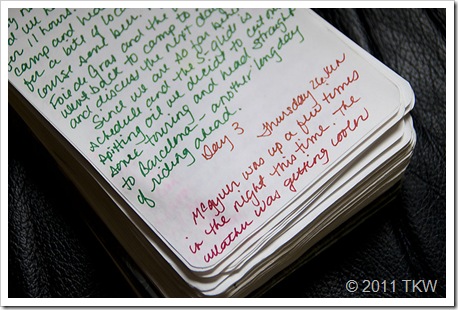 camp and head
for 11 hours.
for a bit of local
tourist
Foie de Gras and the
went back to camp to
discuss the next day
Since we are so far behind
schedule and the S. glide is
spitting oil we decide to cut out
some touring and head straight
to Barcelona - another long day
of riding ahead.
Day 3 Thursday 26
McGyver was up a few times
in the night this time. The
weather was getting cooler
© 2011 TKW